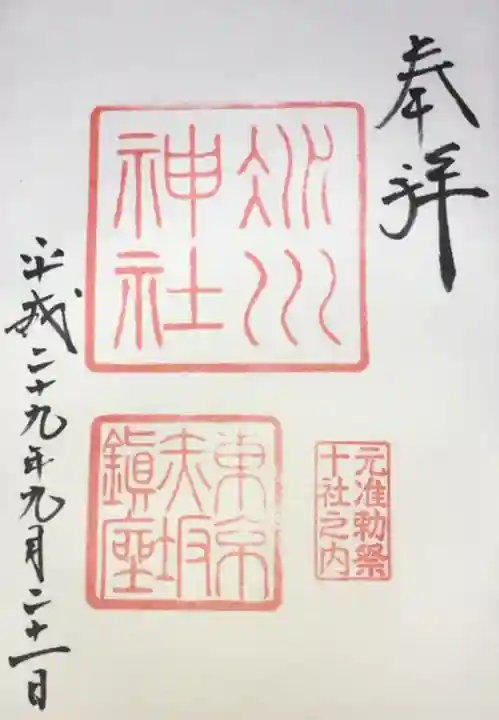 奉拝
氷川
神社
東京
赤坂
鎮座
元准勅祭
十社之内
平成二十九年九月二十一日